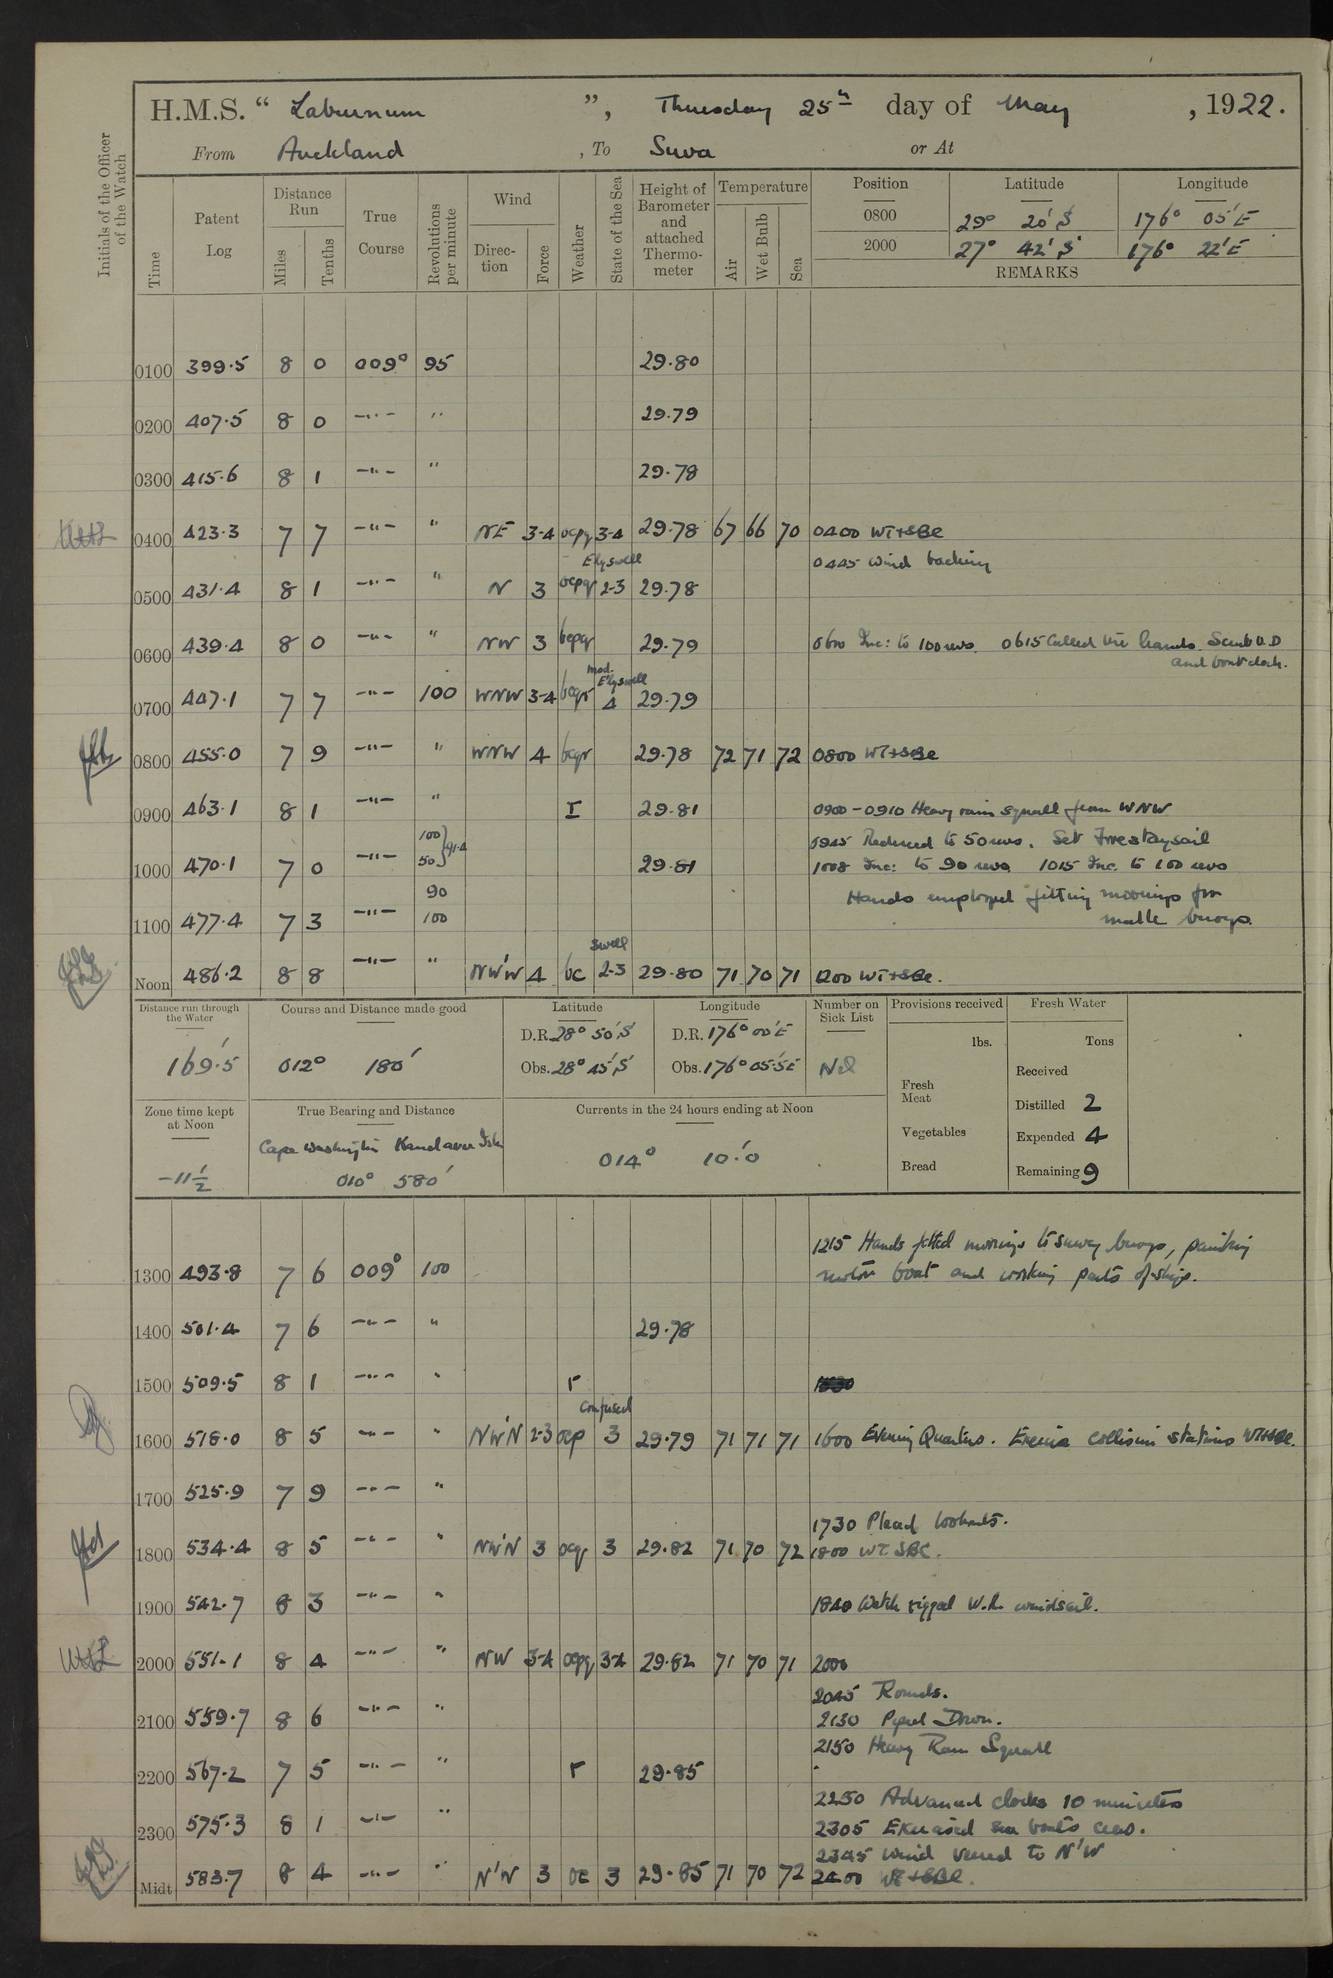 H.M.S. “ Laburnum ”, Thursday 25th day of May , 1922.
From Auckland , To Suva or At
Initials of the Officer of the Watch
Time Patent Log Distance Run Miles Tenths True Course Revolutions per minute Wind Direction Force Weather State of the Sea Height of Barometer and attached Thermometer Temperature Air Wet Bulb Sea
Position Latitude Longitude
0800 29° 20' S 176° 05' E
2000 27° 42' S 176° 22' E
REMARKS
0100 399.5 8 0 009° 95 29.80
0200 407.5 8 0 —"— " 29.79
0300 415.6 8 1 —"— " 29.78
0400 423.3 7 7 —"— " NE 3-4 ocpq 3-4 29.78 67 66 70 0400 WT+SBC
E'ly swell 0445 Wind backing
0500 431.4 8 1 —"— " N 3 ocpq 2-3 29.78
0600 439.4 8 0 —"— " NW 3 bcpq 29.79 0600 Inc: to 100 revs. 0615 Called the hands. Scrub U.D
and boat deck.
mod. E'ly swell
0700 447.1 7 7 —"— 100 WNW 3-4 bcqr 4 29.79
0800 455.0 7 9 —"— " WNW 4 bcqr 29.78 72 71 72 0800 WT+SBC
0900 463.1 8 1 —"— " r 29.81 0900-0910 Heavy rain squall from WNW
100 0945 Reduced to 50 revs. Set Forestaysail
1000 470.1 7 0 —"— 50 } 91.4 29.81 1008 Inc: to 90 revs 1015 Inc. to 100 revs
90 Hands employed fitting moorings for
1100 477.4 7 3 —"— 100 buoys.
swell
Noon 486.2 8 8 —"— " NW'W 4 bc 2-3 29.80 71 70 71 1200 WT+SBC.
Distance run through the Water 169'.5
Course and Distance made good 012° 180'
Latitude D.R. 28° 50' S Obs. 28° 45' S
Longitude D.R. 176° 00' E Obs. 176° 05'.5 E
Number on Sick List Nil
Provisions received lbs. Fresh Meat Vegetables Bread
Fresh Water Tons Received Distilled 2 Expended 4 Remaining 9
Zone time kept at Noon -11½
True Bearing and Distance Cape Washington Kandavu 010° 580'
Currents in the 24 hours ending at Noon 014° 10'.0
1215 Hands fitted moorings to buoys, painting
1300 493.8 7 6 009° 100 motor boat and working parts of ship.
1400 501.4 7 6 —"— " 29.78
1500 509.5 8 1 —"— " r
Confused
1600 518.0 8 5 —"— " NW'N 2-3 ocp 3 29.79 71 71 71 1600 Evening Quarters. Exercise collision stations WT+SBC.
1700 525.9 7 9 —"— "
1730 Placed lookouts.
1800 534.4 8 5 —"— " NW'N 3 ocqr 3 29.82 71 70 72 1800 WT. SBC.
1900 542.7 8 3 —"— " 1840 Watch rigged W.R. windsail.
2000 551.1 8 4 —"— " NW 3-4 ocpq 3-4 29.82 71 70 71 2000
2045 Rounds.
2100 559.7 8 6 —"— " 2130 Piped Down.
2150 Heavy Rain Squall
2200 567.2 7 5 —"— " r 29.85
2250 Advanced clocks 10 minutes
2300 575.3 8 1 —"— " 2305 Exercised sea boats crew.
2345 Wind veered to N'W
Midt 583.7 8 4 —"— " N'W 3 oc 3 29.85 71 70 72 2400 WT+SBC.